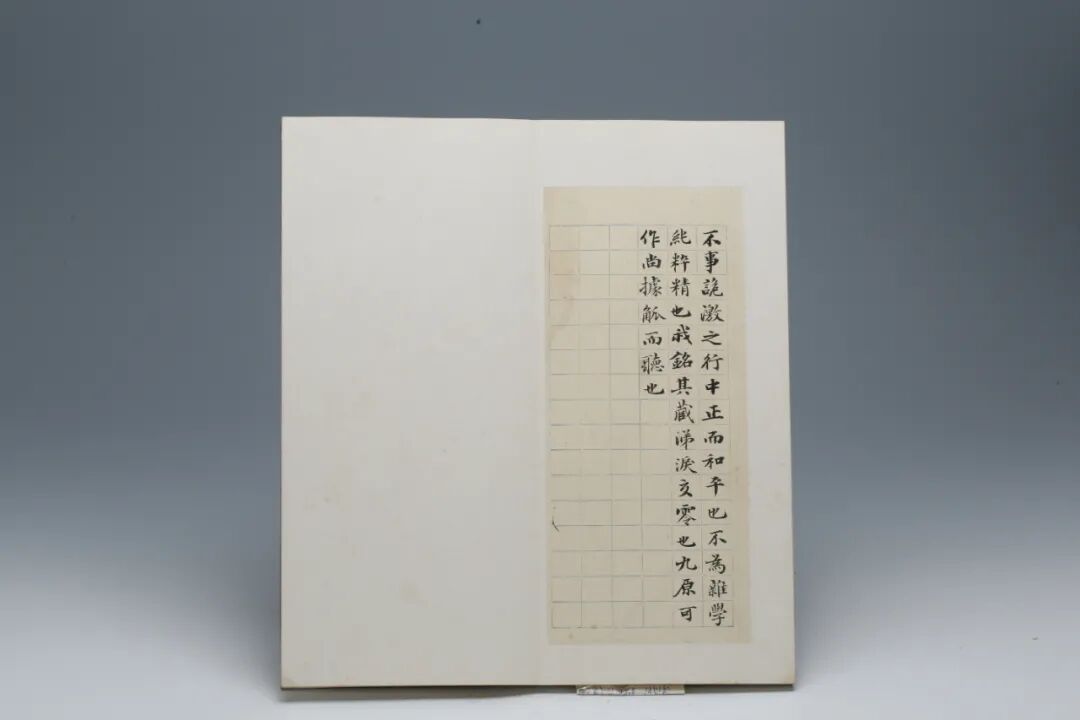 不事詭激之行中正而和平也不為雜學
純粹精也我銘其藏涕淚交零也九原可
作尚據觚而聽也